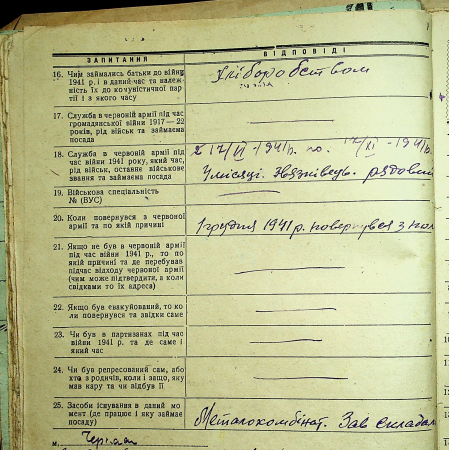 ЗАПИТАННЯ
ВІДПОВІДІ
16. Чим займались батьки до війни
1941 р. і в даний час та належ-
ність їх до комуністичної пар-
тії і з якого часу
Хліборобством
17. Служба в червоній армії під час
громадянської війни 1917—22
років, рід військ та займаєма
посада
18. Служба в червоній армії під час
війни 1941 року, який час,
рід військ, останнє військове
звання та займаєма посада
з 17/VI - 1941р. по 17/XI - 1941р.
4 місяці. Звязківець. рядовий
19. Військова спеціальність
№ (ВУС)
20. Коли повернувся з червоної
армії та по якій причині
1 грудня 1941 р. повернувся з
21. Якщо не був в червоній армії
під час війни 1941 р., то по
якій причині та де перебував
підчас відходу червоної армії
(чим може підтвердити, а коли
свідками то їх адреса)
22. Якщо був евакуйований, то ко-
ли повернувся та звідки саме
23. Чи був в партизанах під час
війни 1941 р. та де саме і
який час
24. Чи був репресований сам, або
хто з родичів, коли і защо, яку
мав кару та чи відбув її
25. Засоби існування в даний мо-
мент (де працює і яку займає
посаду)
Металокомбінат. Зав складом
м.